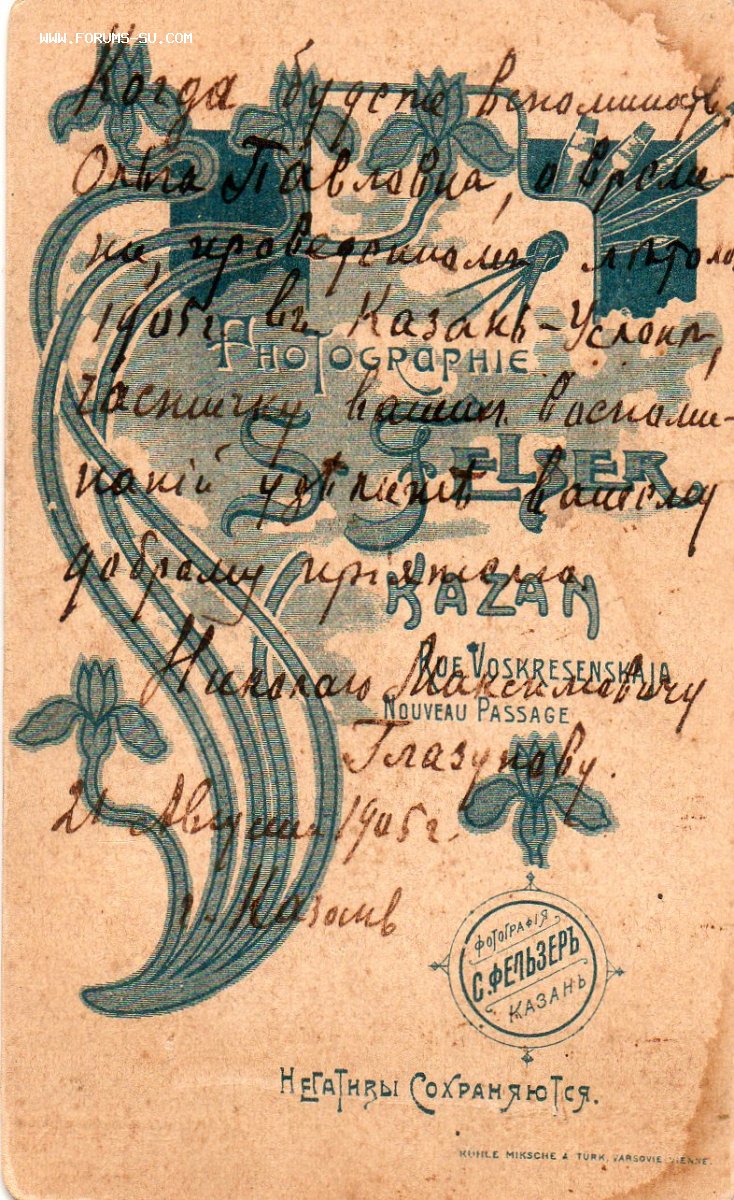 WWW.FORUMS-SU.COM
Когда будете вспоминать,
Ольга Павловна, о време-
ни, проведенномъ лѣтомъ
1905 г. въ Казань-Услонѣ,
частичку вашихъ воспоми-
наній удѣлите вашему
доброму приятелю
Николаю Максимовичу
Глазунову.
21 Августа 1905 г.
г. Казань
PHOTOGRAPHIE
S. FELSER
KAZAN
RUE VOSKRESENSKAJA
NOUVEAU PASSAGE
ФОТОГРАФІЯ
С. ФЕЛЬЗЕРЪ
КАЗАНЬ
НЕГАТИВЫ СОХРАНЯЮТСЯ.
KÜHLE MIKSCHE & TÜRK, VARSOVIE-VIENNE.